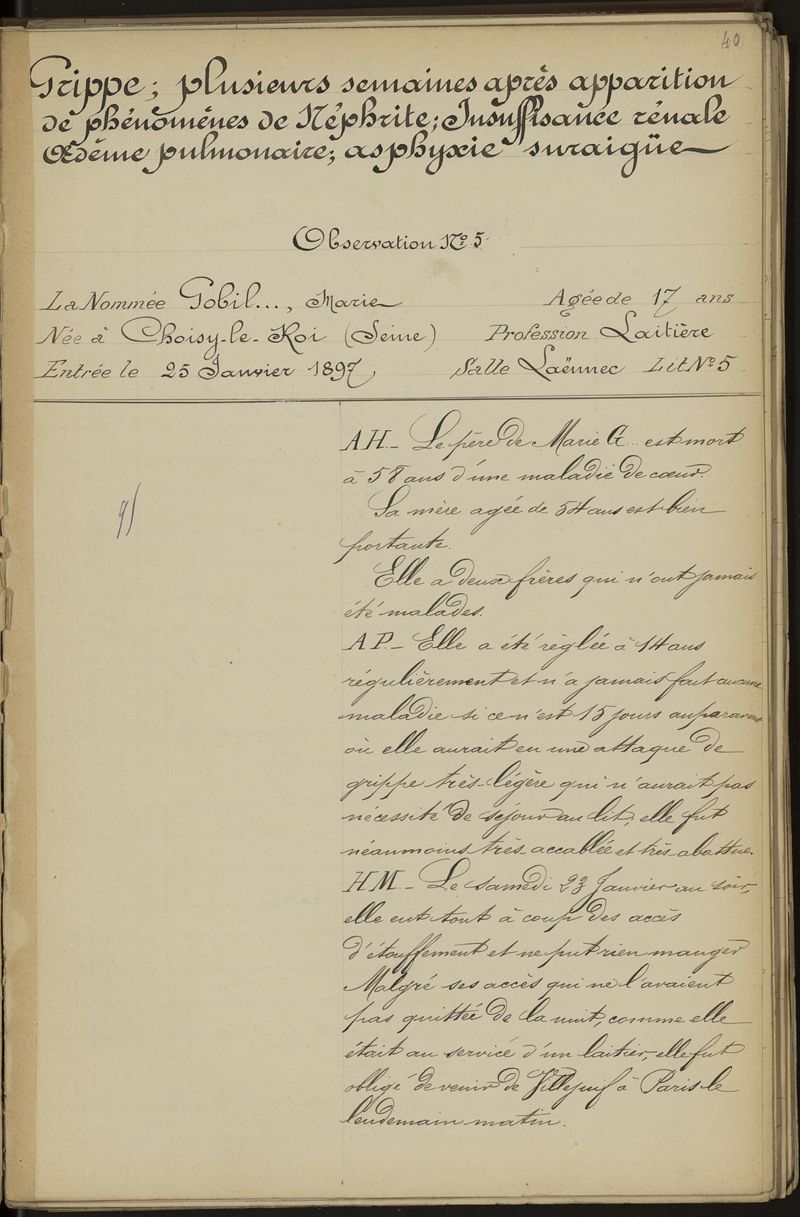 40
Grippe; plusieurs semaines après apparition
de phénomènes de Néphrite; Insuffisance rénale
Œdème pulmonaire; asphyxie suraigüe
Observation No 5
La Nommée Gobil..., Marie Agée de 17 ans
Née à Choisy-le-Roi (Seine) Profession Laitière
Entrée le 25 Janvier 1897, Salle Laënnec Lit No 5
AH._ Le père de Marie G... est mort
à 58 ans d'une maladie de cœur.
Sa mère agée de 54 ans est bien
portante.
Elle a deux frères qui n'ont jamais
été malades.
AP._ Elle a été réglée à 14 ans
régulièrement et n'a jamais fait aucune
maladie si ce n'est 15 jours auparavant
où elle aurait eu une attaque de
grippe très-légère qui n'aurait pas
nécessité de séjour au lit, elle fut
néanmoins très accablée et très abattue.
HM._ Le samedi 23 Janvier au soir,
elle eut tout à coup des accès
d'étouffement et ne put rien manger
Malgré ses accès qui ne l'avaient
pas quittée de la nuit, comme elle
était au service d'un laitier, elle fut
obligé de venir de Villejuif à Paris le
lendemain matin.